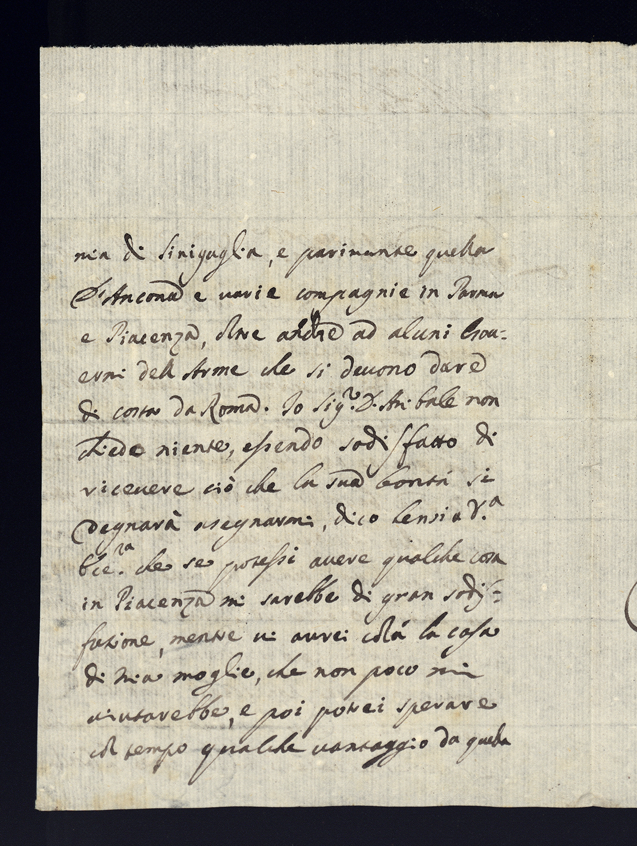 nia di Sinigaglia, e parimante quella
D'Ancona e varie compagnie in Parma
e Piacenza, oltre anche ad aluni Gou-
erni dell Arme che si devono dare
di costa da Roma. Io Sig.re D. Anibale non
chiedo niente, essendo sodisfatto di
ricevere ciò che la sua bontà si
degnarà asegnarmi, dico bensi a V.a
Ecc.za che se potessi avere qualche cosa
in Piacenza mi sarebbe di gran sodis-
fazione, mentre vi avrei colà la casa
di mia moglie, che non poco mi
aiutarebbe, e poi potrei sperare
col tempo qualche vantaggio da quella